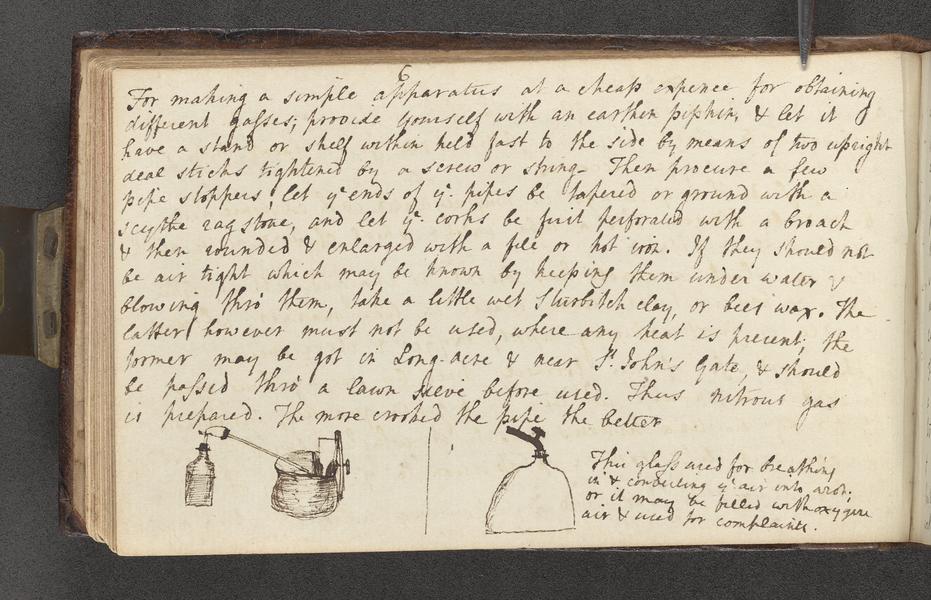 6
For making a simple apparatus at a cheap expence for obtaining
different gasses; provide yourself with an earthen pipkin, & let it
have a stand or shelf within held fast to the side by means of two upright
deal sticks tightened by a screw or string. Then procure a few
pipe stoppers, let yᵉ ends of yᵉ pipes be tapered or ground with a
scythe rag stone, and let yᵉ corks be first perforated with a broach
& then rounded & enlarged with a file or hot iron. If they should not
be air tight which may be known by keeping them under water &
blowing thrō them, take a little wet Sturbitch clay, or bees wax. The
latter however must not be used, where any heat is present; the
former may be got in Long-acre & near Sᵗ. John's Gate, & should
be passed thrō a lawn sieve before used. Thus nitrous gas
is prepared. The more crooked the pipe the better
This glass used for breathing
in & conducting yᵉ air into
or it may be filled with oxygene
air & used for complaints.